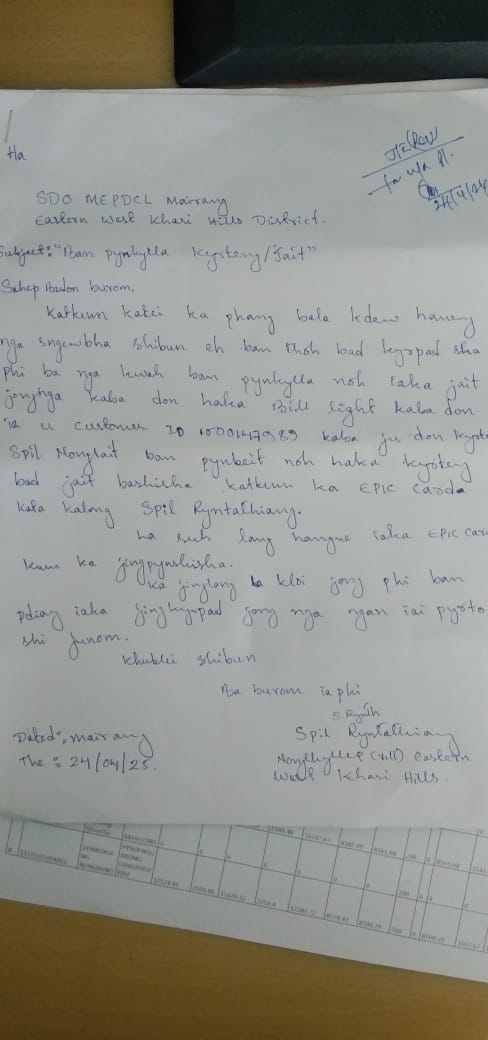 Ha
J/E (Rev)
for n/a pl.
24/4/24
SDO MEPDCL Mairang
Eastern West Khasi Hills District.
Subject: "Ban pynkylla kyrteng/Jait"
Sahep Badon burom,
Katkum katei ka phang bala kdew haneng
nga sngewbha shibun eh ban thoh bad kyrpad sha
phi ba nga kwah ban pynkylla noh iaka jait
jongnga kaba don haka Bill light kaba don
ia u customer ID 1000147989 kaba ju don kyrte
Spil Nonglait ban pynbeit noh haka kyrteng
bad jait bashisha katkum ka EPIC Carda
kata kalong Spil Ryntathiang.
Ha suh lang hangne iaka EPIC Car
kum ka jingpynshisha.
Ka jinglong ba kloi jong phi ban
pdiang iaka jingkyrpad jong nga ngan iai pyrto
shi junom.
Khublei shibun
Ba burom ia phi
Spil Ryntathiang
(vill) Eastern
West Khasi Hills.
Dated: Mairang
The : 24/04/25.